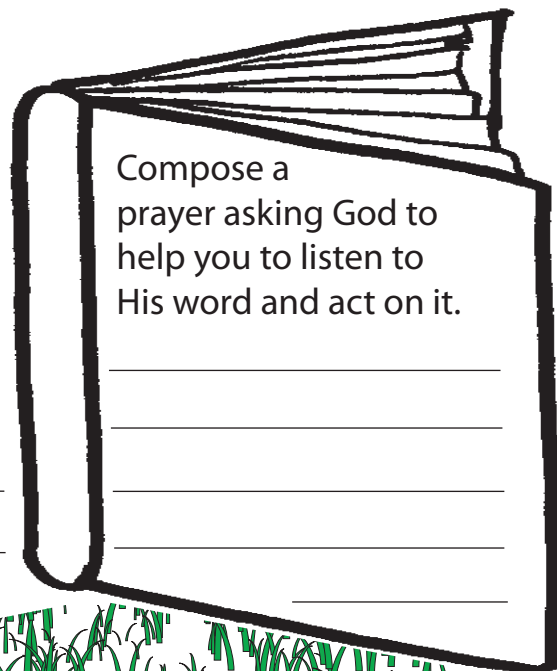 Compose a
prayer asking God to
help you to listen to
His word and act on it.